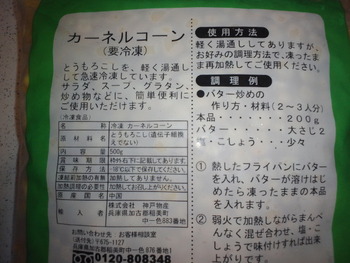 カーネルコーン
(要冷凍)
とうもろこしを、軽く湯通し
して急速冷凍しています。
サラダ、スープ、グラタン、
炒め物などに、簡単便利に
ご使用いただけます。
《冷凍食品》
名称 冷凍 カーネルコーン
原材料名 とうもろこし(遺伝子組換えでない)
内容量 500g
賞味期限 枠外右下に記載してあります。
保存方法 -18℃以下で保存してください。
凍結前加熱の有無 加熱してありません。
加熱調理の必要性 加熱してお召し上がりください。
原産国名 中国
輸入者 株式会社 神戸物産
兵庫県加古郡稲美町
中一色883番
お問い合わせ先 お客様相談室
(送付先)〒675-1127
兵庫県加古郡稲美町中一色876番地
0120-808348
使用方法
軽く湯通ししてありますが、
お好みの調理方法で、凍ったま
ま再加熱してご使用ください。
調理例
●バター炒め
作り方・材料(2~3人分)
本品・・・・・・・200g
バター・・・・・大さじ2
塩・こしょう・・・少々
① 熱したフライパンにバター
を入れ、バターが溶けはじ
めたら凍ったままの本品を
入れます。
② 弱火で加熱しながらまんべ
んなく混ぜ合わせ、塩・こ
しょうで味付けすれば出来
上がりです。